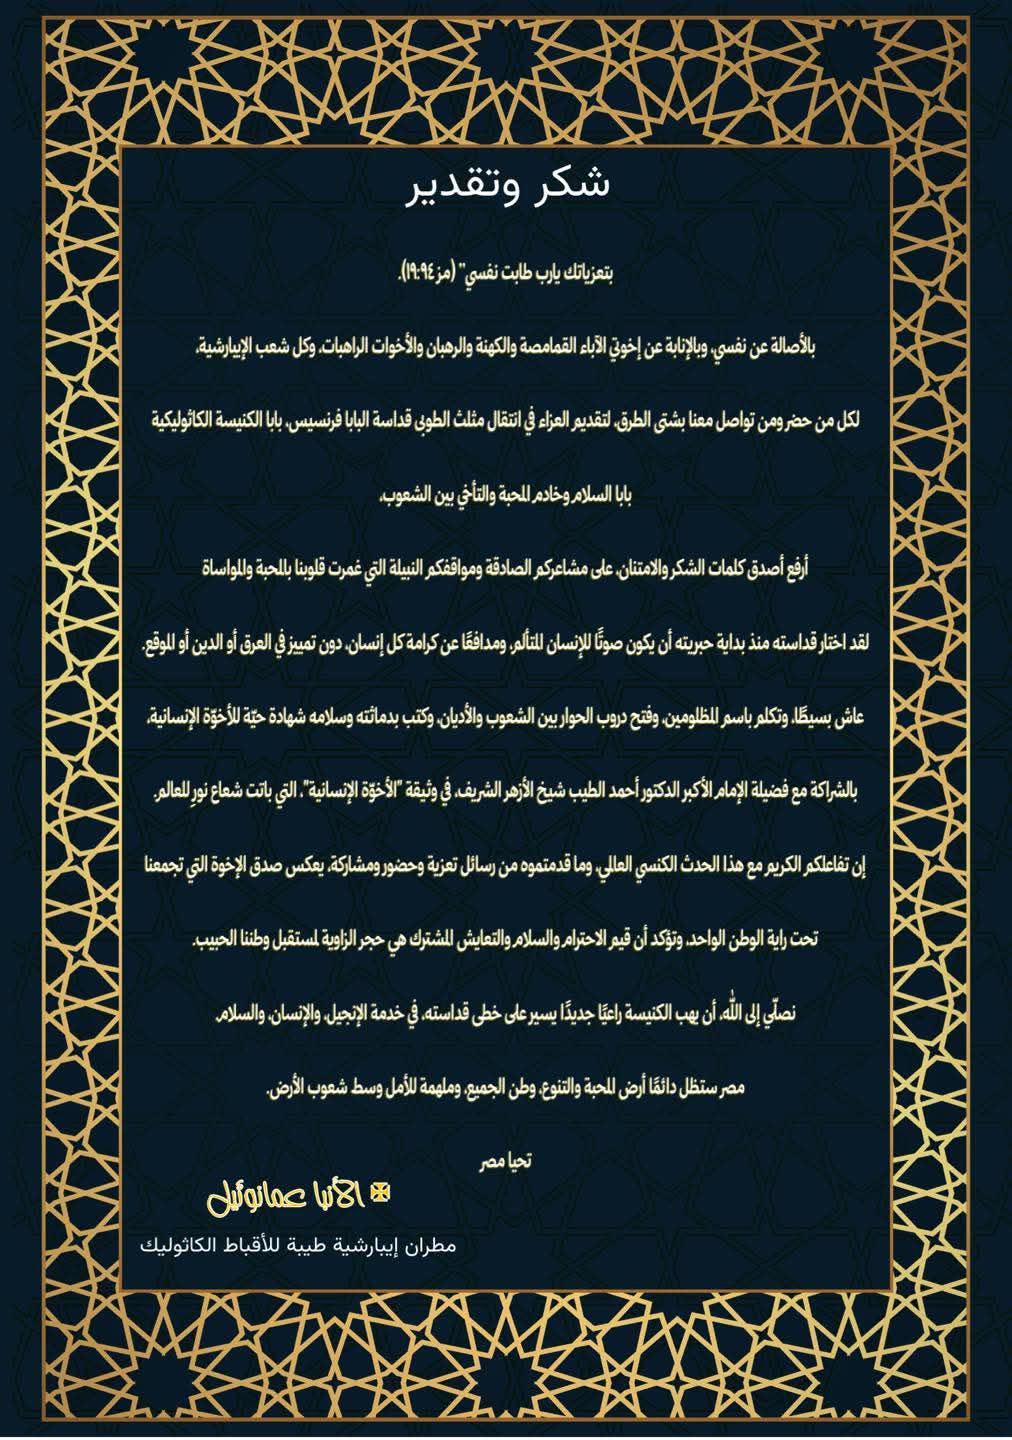 شكر وتقدير
بتعزياتك يارب طابت نفسي" (مز ١٩:٩٤).
بالأصالة عن نفسي، وبالإنابة عن إخوتي الآباء القمامصة والكهنة والرهبان والأخوات الراهبات، وكل شعب الإيبارشية،
لكل من حضر ومن تواصل معنا بشتى الطرق، لتقديم العزاء في انتقال مثلث الطوبى قداسة البابا فرنسيس، بابا الكنيسة الكاثوليكية
بابا السلام وخادم المحبة والتأخي بين الشعوب،
أرفع أصدق كلمات الشكر والامتنان، على مشاعركم الصادقة ومواقفكم النبيلة التي غمرت قلوبنا بالمحبة والمواساة
لقد اختار قداسته منذ بداية حبريته أن يكون صوتًا للإنسان المتألم، ومدافعًا عن كرامة كل إنسان، دون تمييز في العرق أو الدين أو الموقع.
عاش بسيطًا، وتكلم باسم المظلومين، وفتح دروب الحوار بين الشعوب والأديان، وكتب بدمائته وسلامه شهادة حيّة للأخوّة الإنسانية،
بالشراكة مع فضيلة الإمام الأكبر الدكتور أحمد الطيب شيخ الأزهر الشريف، في وثيقة "الأخوّة الإنسانية"، التي باتت شعاع نورٍ للعالم.
إن تفاعلكم الكريم مع هذا الحدث الكنسي العالمي، وما قدمتموه من رسائل تعزية وحضور ومشاركة، يعكس صدق الإخوة التي تجمعنا
تحت راية الوطن الواحد، وتؤكد أن قيم الاحترام والسلام والتعايش المشترك هي حجر الزاوية لمستقبل وطننا الحبيب.
نصلّي إلى الله، أن يهب الكنيسة راعيًا جديدًا يسير على خطى قداسته، في خدمة الإنجيل، والإنسان، والسلام.
مصر ستظل دائمًا أرض المحبة والتنوع، وطن الجميع، وملهمة للأمل وسط شعوب الأرض.
تحيا مصر
الأنبا عمانوئيل
مطران إيبارشية طيبة للأقباط الكاثوليك